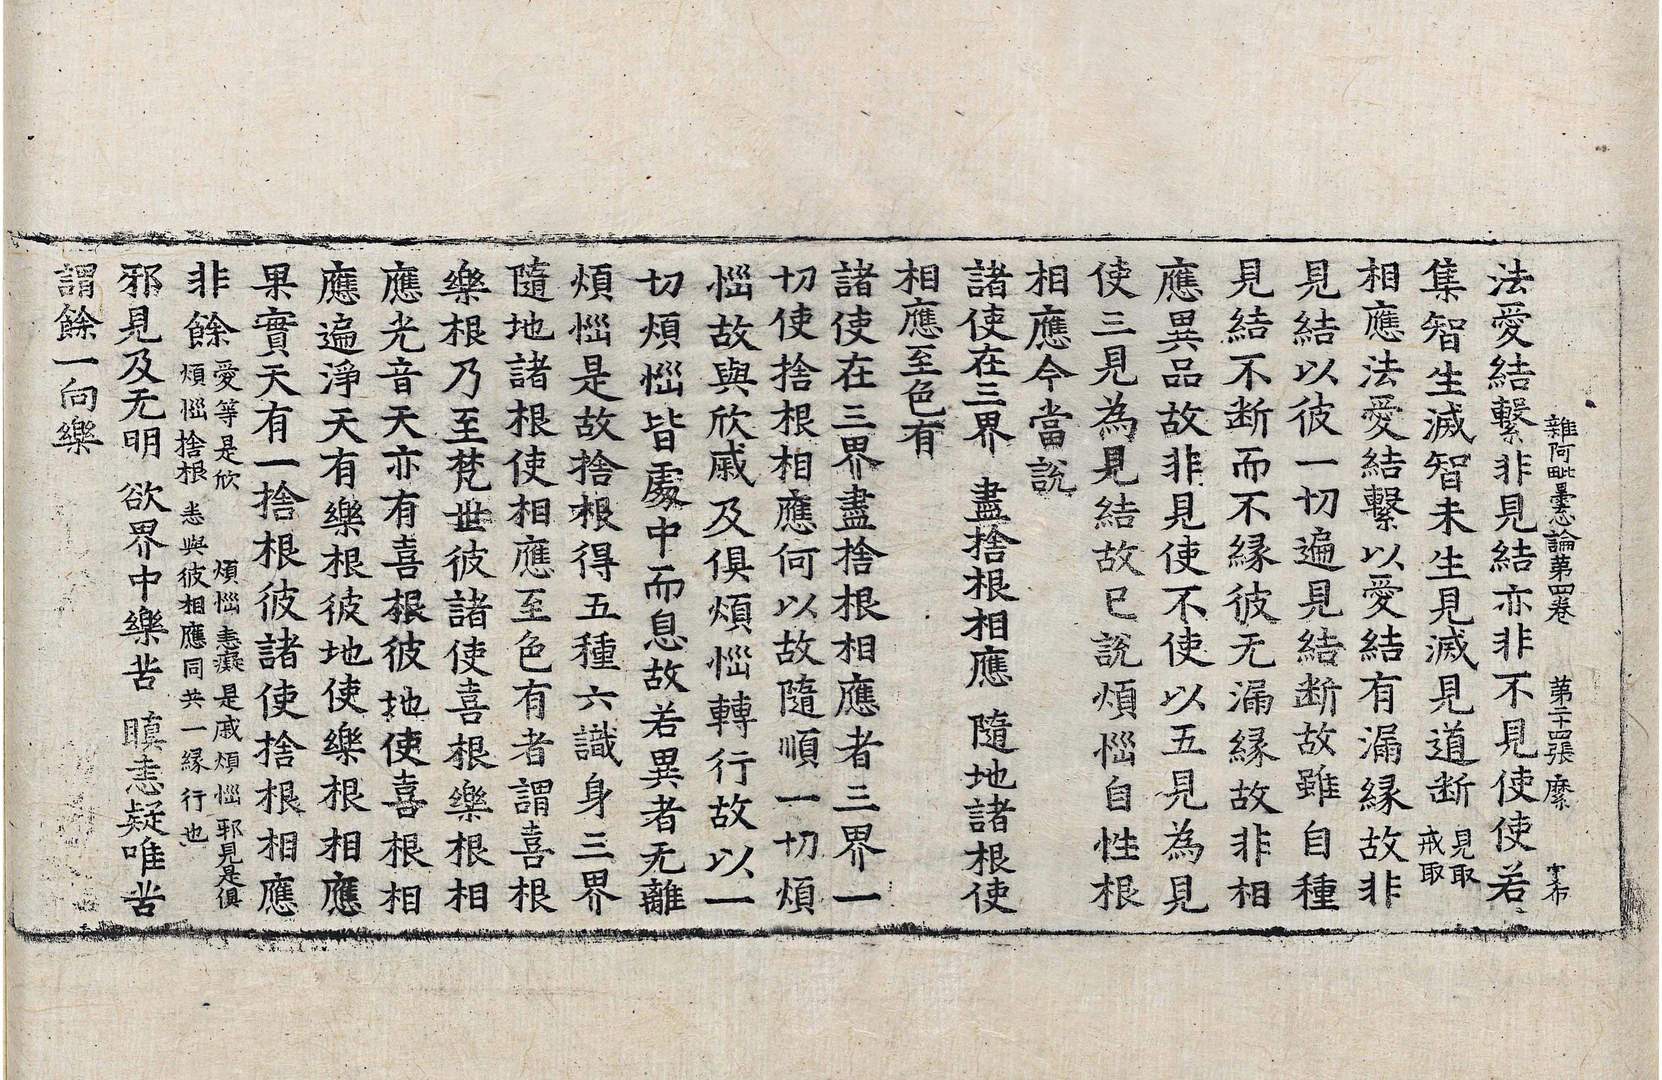 雜阿毗曇心論第四卷 第二十四張 縻
法愛結繫非見結亦非不見使使若
集智生滅智未生見滅見道断見取戒取
相應法愛結繫以愛結有漏縁故非
見結以彼一切遍見結断故雖自種
見結不断而不縁彼无漏縁故非相
應異品故非見使不使以五見為見
使三見為見結故已說煩惱自性根
相應今當說
諸使在三界 盡捨根相應 隨地諸根使
相應至色有
諸使在三界盡捨根相應者三界一
切使捨根相應何以故隨順一切煩
惱故與欣戚及俱煩惱轉行故以一
切煩惱皆處中而息故若異者无離
煩惱是故捨根得五種六識身三界
隨地諸根使相應至色有者謂喜根
樂根乃至梵世彼諸使喜根樂根相
應光音天亦有喜根彼地使喜根相
應遍淨天有樂根彼地使樂根相應
果實天有一捨根彼諸使捨根相應
非餘愛等是欣煩惱恚癡是戚煩惱邪見是俱
煩惱捨根悉與彼相應同共一縁行也
邪見及无明 欲界中樂苦 瞋恚疑唯苦
謂餘一向樂